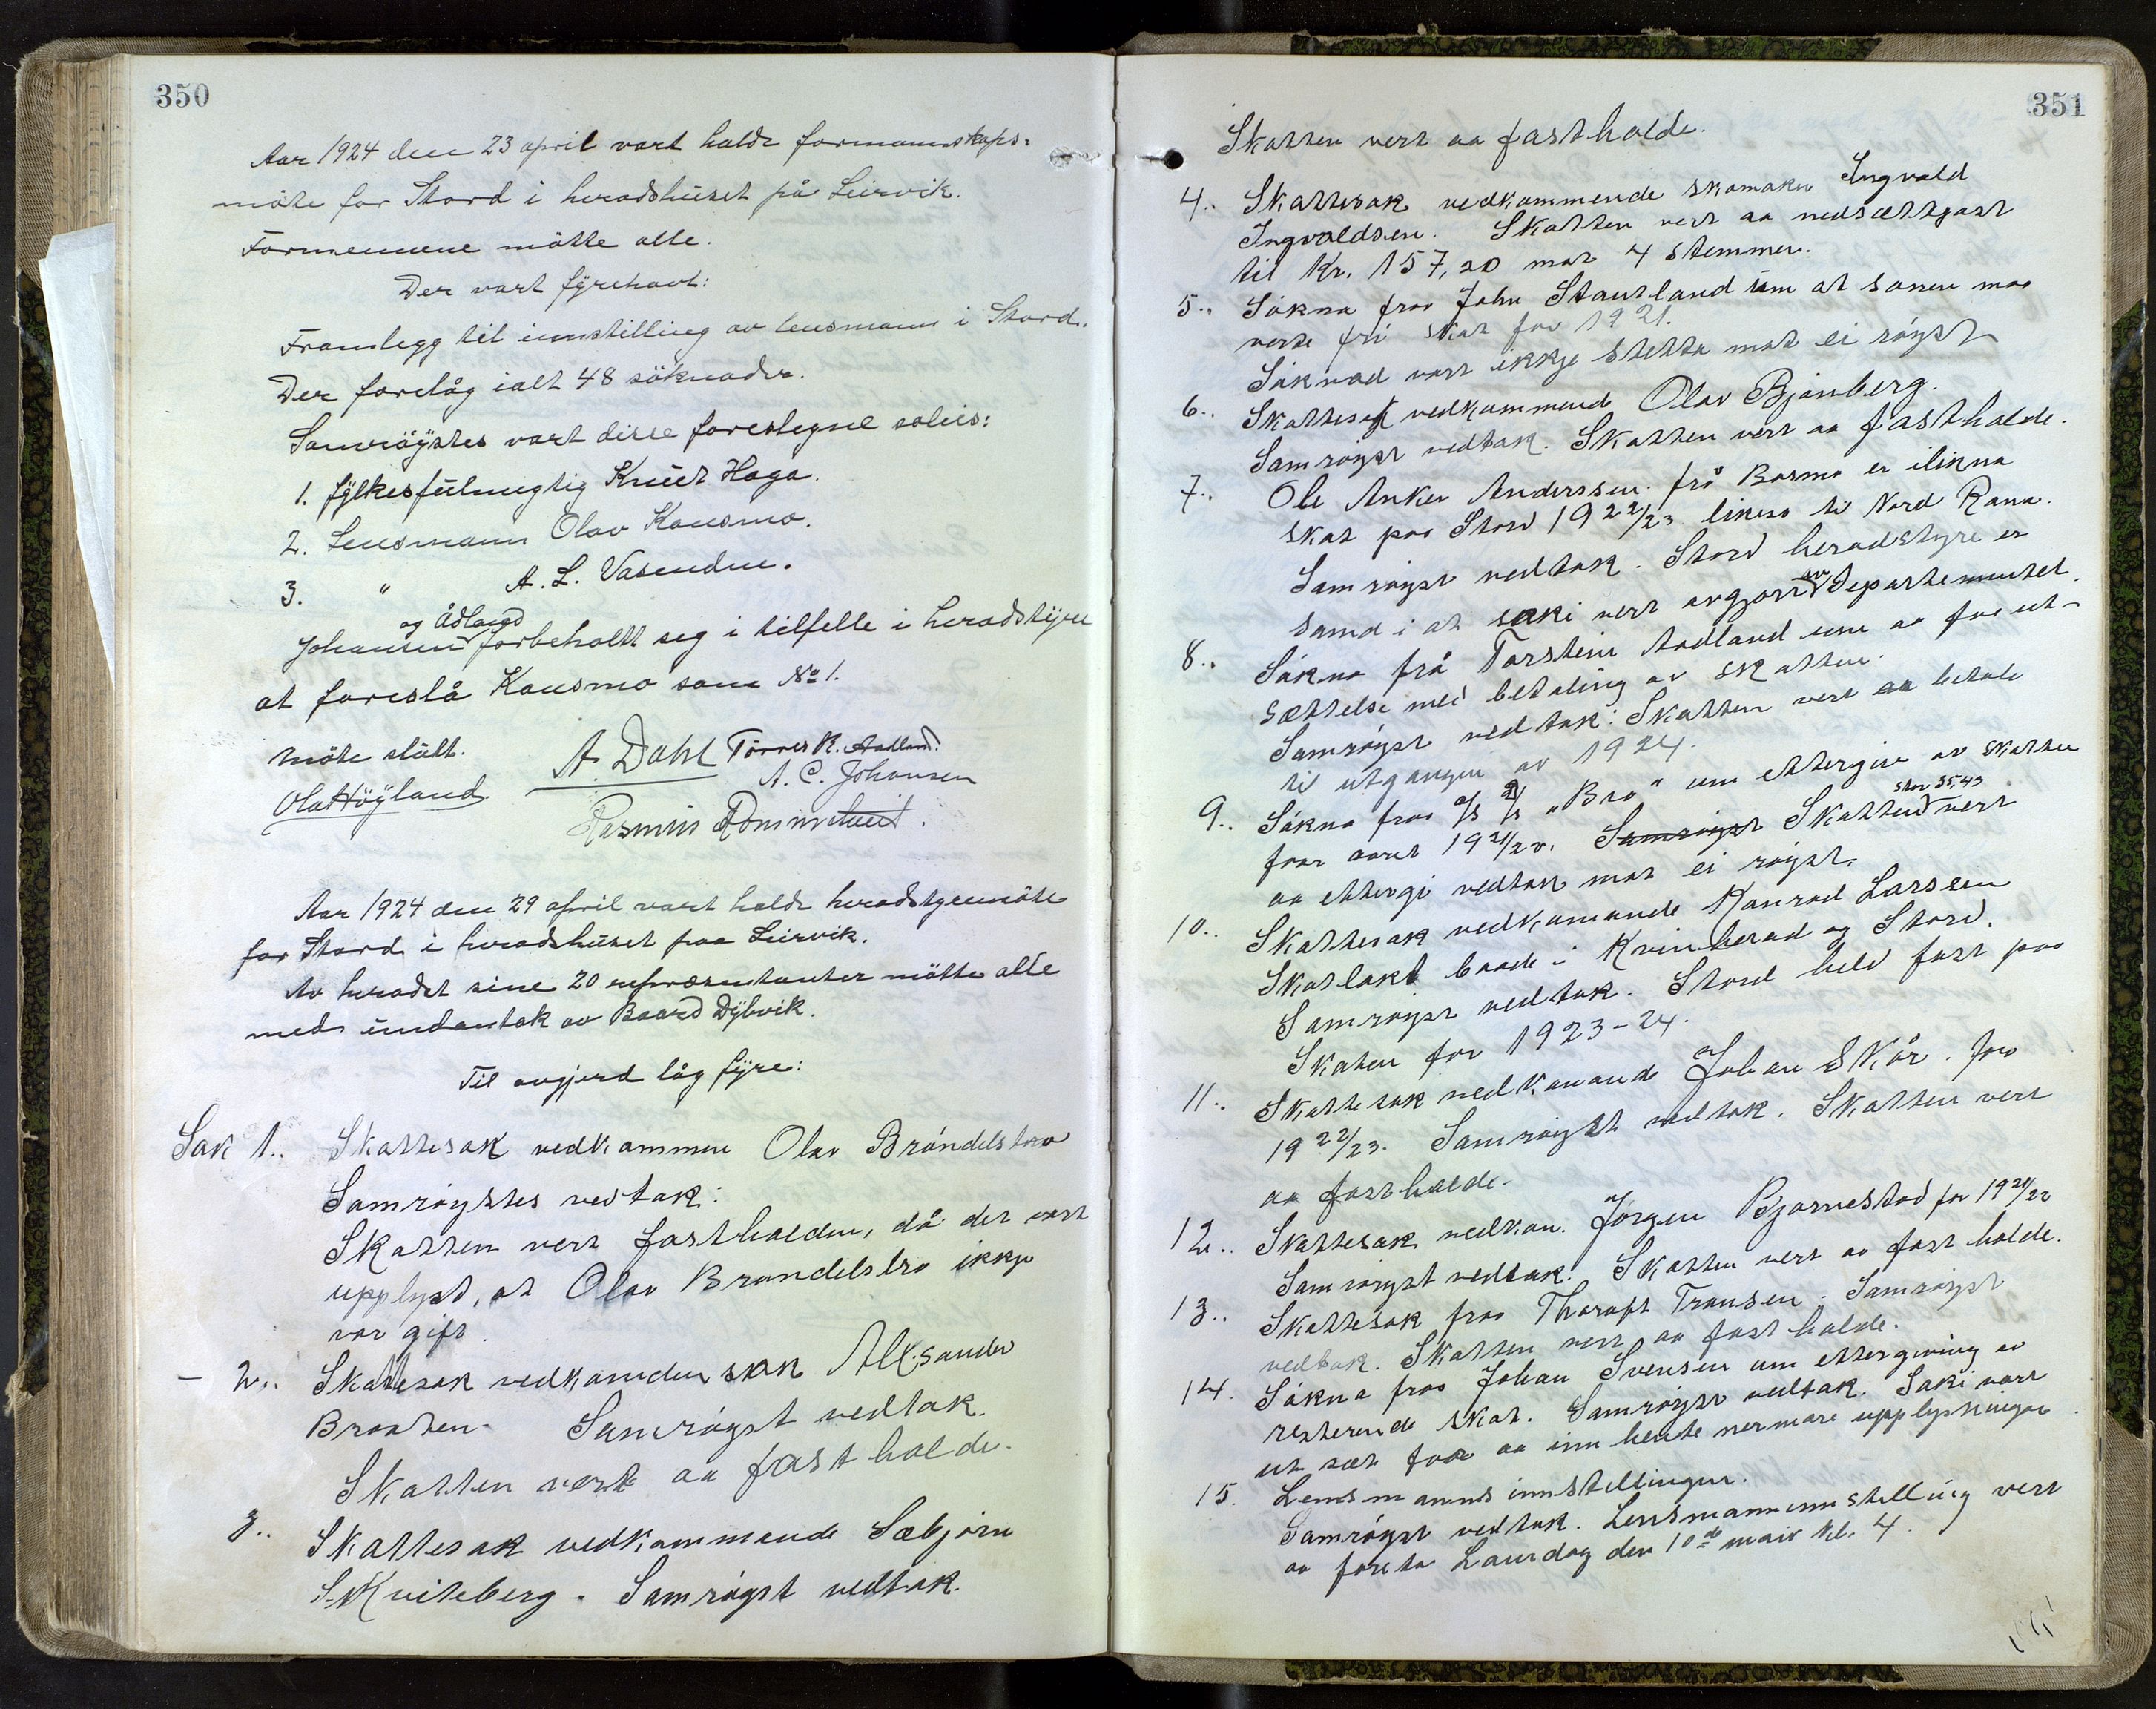 350
Aar 1924 den 23 april vart halde formannskaps-
möte for Stord i heradshuset på Leirvik.
Formennene mötte alle.
Der vart fyrehavt:
Framlegg til innstilling av lensmann i Stord.
Der forelåg ialt 48 söknader.
Samröystes vart disse foreslegne soleis:
1. fylkesfulmegtig Knut Haga.
2. Lensmann Olav Kausmo.
3. " A. L. Vasenden.
og Ådland
Johansen forbeholtt seg i tilfelle i heradstyre
at foreslå Kausmo som No 1.
Möte slutt.
A. Dahl Törres K. Aadland.
Ola Höyland A. C. Johansen
Rasmus Rommetveit.
Aar 1924 den 29 april vart halde heradstyremöte
for Stord i heradshuset paa Leirvik.
Av heradet sine 20 representanter mötte alle
med undantak av Baard Dybvik.
Til avgjerd låg fyre:
Sak 1.. Skattesak vedkommen Olav Bröndelsbro
Samröystes vedtak:
Skatten vert fasthalden, då det vart
upplyst, at Olav Brondelsbro ikkje
var gift.
- 2.. Skattesak vedkomden sak Alexsander
Braaten. Samröyst vedtak.
Skatten vert aa fasthalde.
3.. Skattesak vedkommende Sæbjörn
S. Kviteberg. Samröyst vedtak.
351
Skatten vert aa fasthalde.
4.. Skattesak vedkommende skomaker Ingvald
Ingvaldsen. Skatten vert aa nedsættast
til Kr. 157,20 mot 4 stemmer.
5.. Sökna fraa John Stautland um at sonen maa
verte fri skat for 1921.
Söknad vart ikkje stetta mot ei röyst
6.. Skattesak vedkommend Olav Bjånberg.
Samröyst vedtak. Skatten vert aa fasthalde.
7.. Ole Anker Anderssen frå Basmo er ilikna
skat paa Stord 1922/23 likeso til Nord Rana.
Samröyst vedtak. Stord heradstyre er
samd i at saki vert avgjort av Departementet.
8.. Sökna frå Torstein Aadland um aa faa ut-
sættelse med betaling av skatten.
Samröyst vedtak: Skatten vert aa betale
til utgangen av 1924.
9.. Sökna fraa a/s "Bro" um ettergive av skatten
faar aaret 1921/22. Samröyst Skatten stor 35,43 vert
aa ettergi vedtak mot ei röyst.
10.. Skattesak vedkomande Konrad Larssen
Skatlakt baade i Kvinherad og Stord.
Samröyst vedtak. Stord held fast paa
Skaten for 1923-24.
11.. Skattesak vedkomande Johan Skår. for
1922/23. Samröyst vedtak. Skatten vert
aa fasthalde.
12.. Skattesak vedkom. Jörgen Bjornestad for 1921/22
Samröyst vedtak. Skatten vert aa fast halde.
13.. Skattesak fraa Thoralf Transen. Samröyst
vedtak. Skatten vert aa fast halde.
14. Sökna fraa Johan Svensen um ettergiving av
resterende skat. Samröyst vedtak. Saki vart
ut sæt for aa inn hente nermare upplysningar
15. Lensmanns innstellingen.
Samröyst vedtak. Lensmanninnstelling vert
aa foreta Laurdag den 10de mai kl. 4.